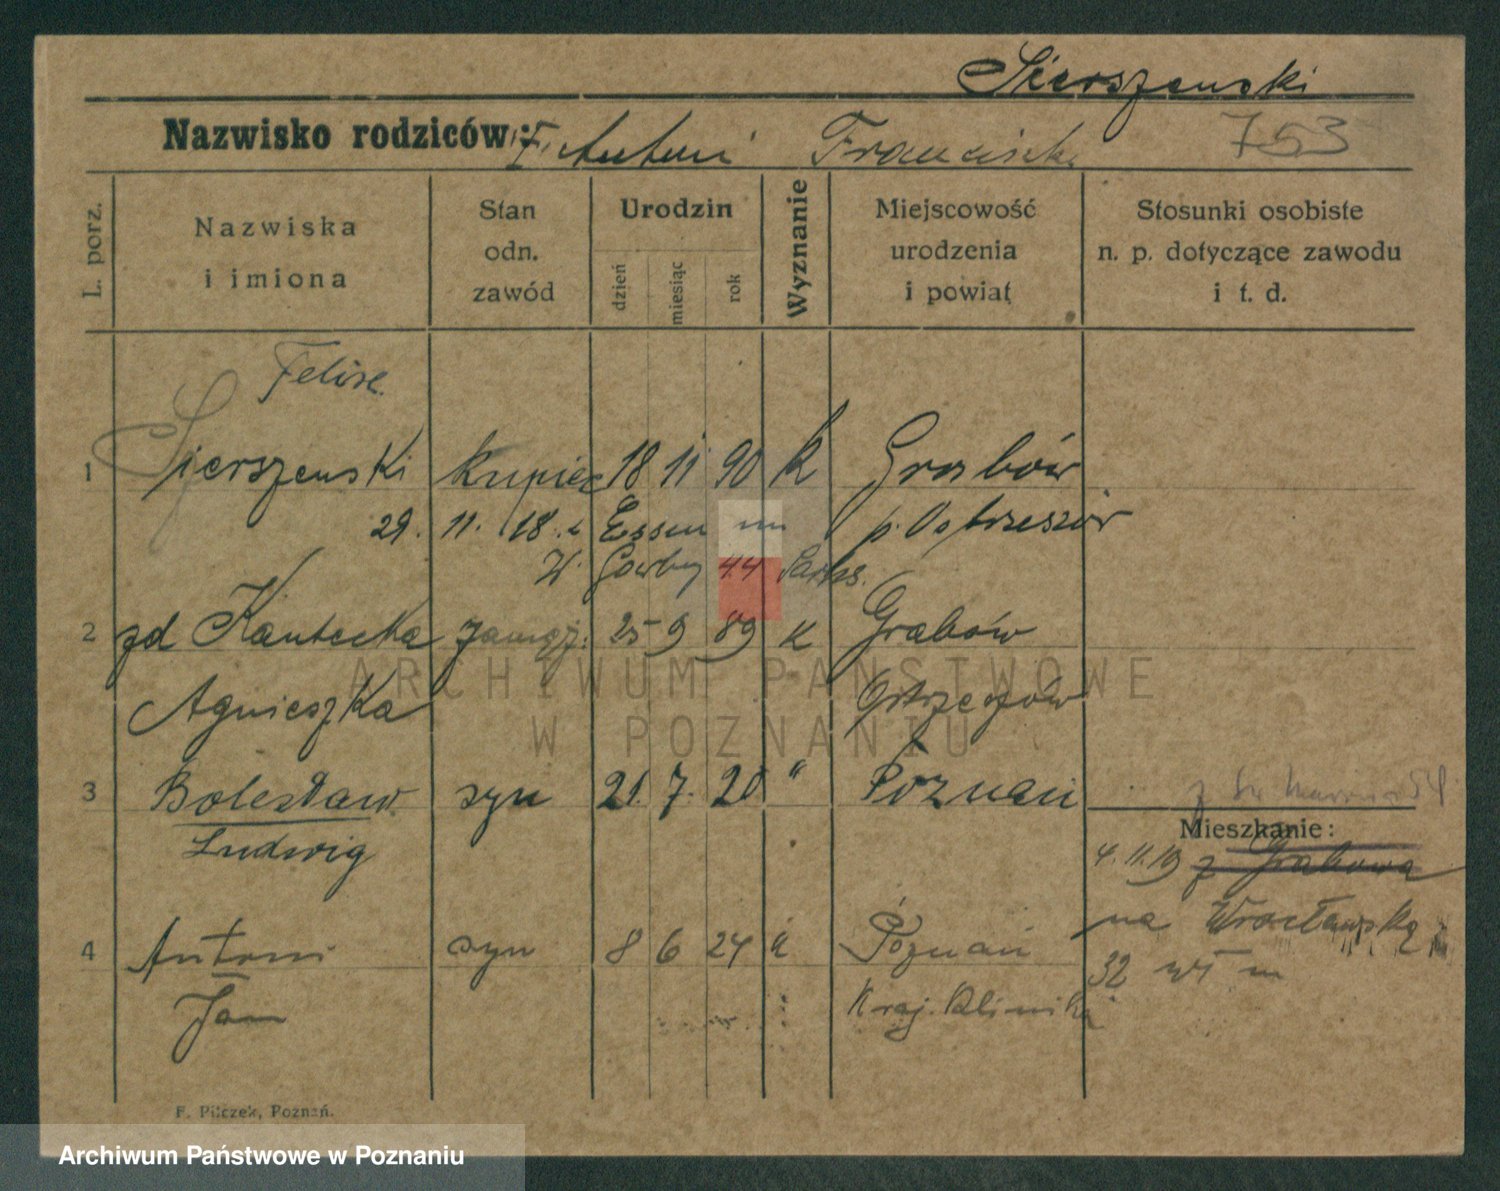 Sierszenski
Nazwisko rodziców: Antoni Franciszka
753
L. porz.
Nazwiska i imiona
Stan odn. zawód
Urodzin
dzień
miesiąc
rok
Wyznanie
Miejscowość urodzenia i powiat
Stosunki osobiste n. p. dotyczące zawodu i t. d.
Felixe
1 Sierszenski kupiec 18 11 90 k Grabów
29. 11. 18. Essen p. Ostrzeszów
44
2 zd Kantecka zamęż. 25 9 89 k Grabów
Agnieszka Ostrzeszów
3 Bolesław syn 21. 7. 20 " Poznań
Ludwig
z Św Marcin 54
Mieszkanie:
4. 11. 19 z Grabowa
na Wrocławską
32
4 Antoni syn 8 6 24 k Poznań
Jan Kraj. Klinika
F. Pilczek, Poznań.
ARCHIWUM PAŃSTWOWE
W POZNANIU
Archiwum Państwowe w Poznaniu